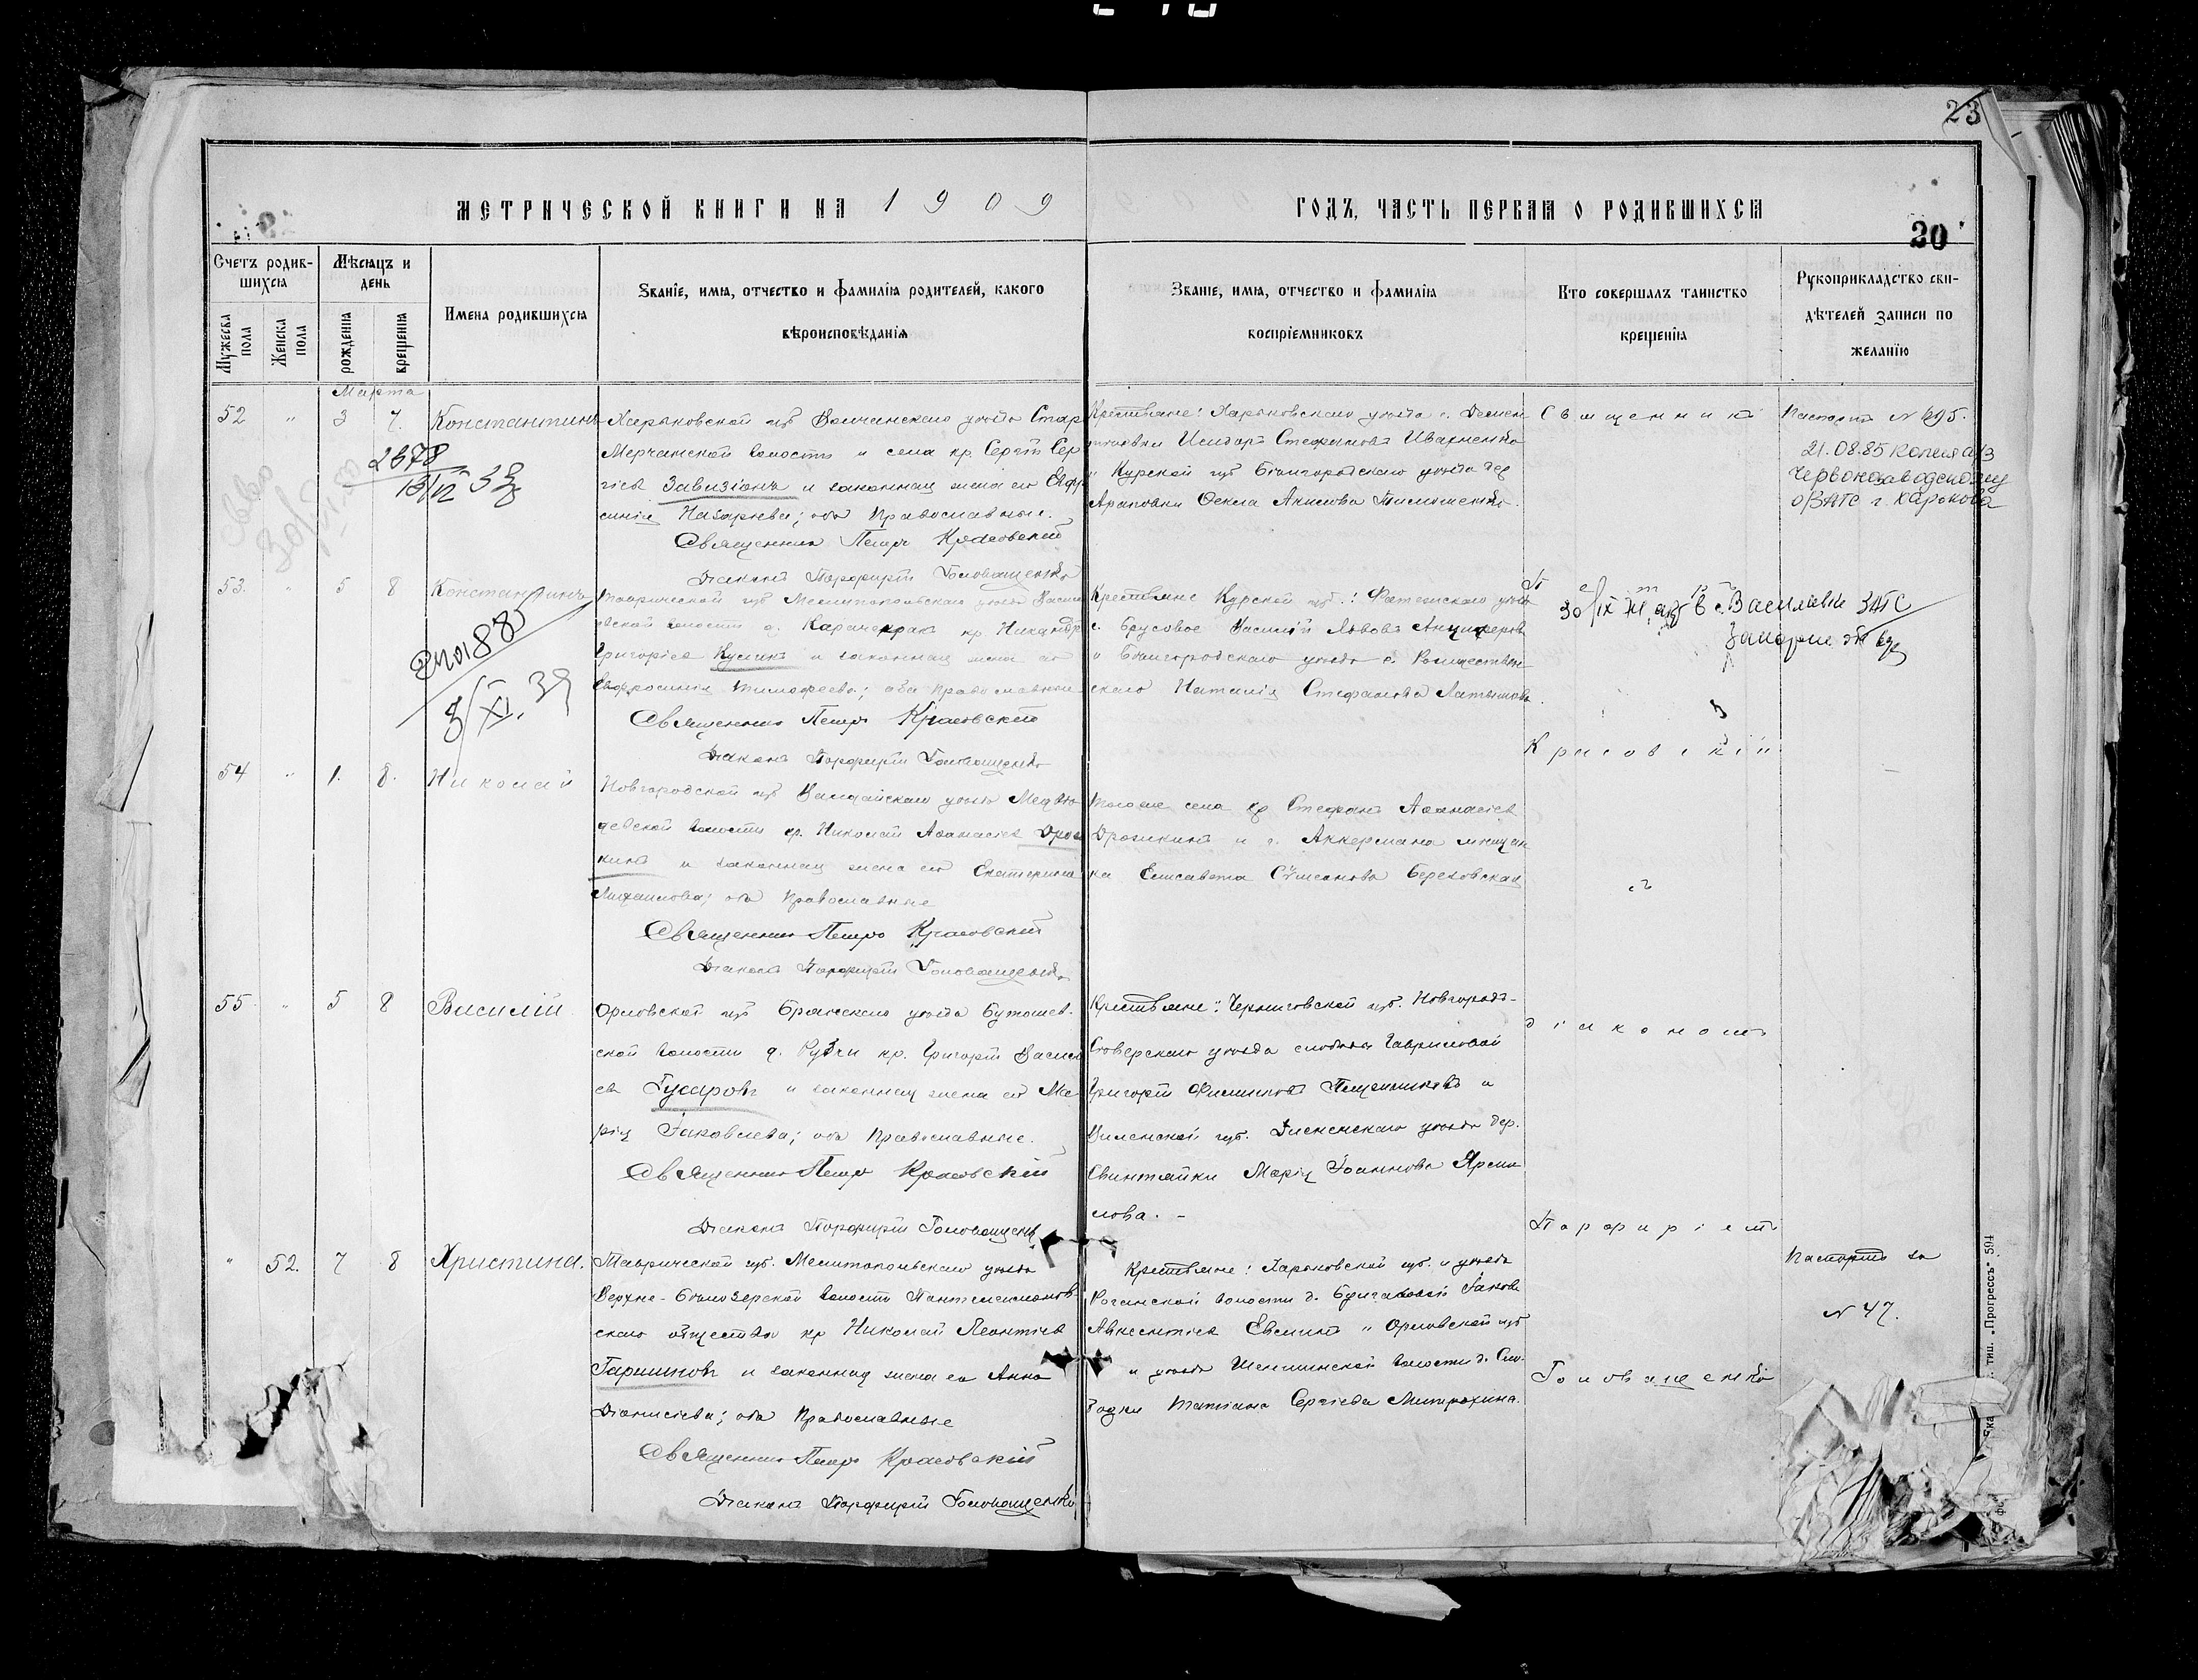 23
МЕТРИЧЕСКОЙ КНИГИ НА 1909
ГОДЪ, ЧАСТЬ ПЕРВАЯ О РОДИВШИХСЯ
20
Счетъ родив-
шихся
Мужеска пола
Женска пола
Мѣсяцъ и
день
рожденія
крещенія
Имена родившихся
Званіе, имя, отчество и фамилія родителей, какого
вѣроисповѣданія
Званіе, имя, отчество и фамилія
воспріемниковъ
Кто совершалъ таинство
крещенія
Рукоприкладство сви-
дѣтелей записи по
желанію
Марта
52 " 3 7. Константинъ
Харьковской губ Волчанскаго уѣзда Стар
Мерчанской волости и села кр. Сергій Сер
гіевъ Завизіонъ и законная жена его Евфр
синія Назарьева; оба православные.
Священникъ Петръ Красовскій
Діаконъ Порфирій Головащенко
Крестьяне: Харьковскаго уѣзда с.
Исидоръ Стефановъ Ивахненко
и Курской губ Бѣлгородскаго уѣзда дер
Араповки Фекла Акилова Тимошенко.
Священникъ
Паспортъ № 295.
21.08.85 копия а/з
Червонозаводскому
о/ЗАГС г. Харькова
2678
53. " 5 8 Константинъ
Таврической губ Мелитопольскаго уѣзда Васи
евской волости с. Карачекрак кр. Никандръ
Григорьевъ Кулик и законная жена его
Евфросинія Тимофеева; оба православные
Священникъ Петръ Красовскій
Діаконъ Порфирій Головащенко
Крестьяне Курской губ.: Фатежскаго уѣзда
с. Брусовое Василій Львовъ Анциферовъ
и Бѣлгородскаго уѣзда с. Рождествен
скаго Наталія Стефанова Латышова.
30/IX в Василевка ЗАГС
3/XI. 39
54 " 1. 8. Николай
Новгородской губ Валдайскаго уѣзда Медвѣ
девской волости кр. Николай Аѳанасіевъ Дрож
кинъ и законная жена его Екатерина
Михаилова; оба православные
Священникъ Петръ Красовскій
Діаконъ Порфирій Головащенко
Того же села кр Стефанъ Аѳанасіевъ
Дрожкинъ и г. Аккермана мѣщан
ка Елисавета Симеонова Береховская
Красовскій
съ
55 " 5 8 Василій
Орловской губ Брянскаго уѣзда Бутошев-
ской волости д. Рубчи кр. Григорій Васил
евъ Гусаровъ и законная жена его Ма
рія Іаковлева; оба православные.
Священникъ Петръ Красовскій
Діаконъ Порфирій Головащенко
Крестьяне: Черниговской губ. Новгородъ-
Сѣверскаго уѣзда слободы Гавриловой
Григорій Филиповъ и
Виленской губ. Дисненскаго уѣзда дер.
Свинтайки Марія Іоаннова Ярми
лова. -
діакономъ
" 52. 7 8 Христина.
Таврической губ. Мелитопольскаго уѣзда
Верхне-Бѣлозерской волости Пантелеимонов
скаго общества кр Николай Леонтіевъ
Гаршинъ и законная жена его Анна
Діонисіева; оба православные
Священникъ Петръ Красовскій
Діаконъ Порфирій Головащенко
Крестьяне: Харьковской губ. и уѣзда
Роганской волости д. Іаковъ
Авксентіевъ Евсинъ и Орловской губ
и уѣзда волости д. Сло-
бодки Татіана Сергіева Митрохина.
Порфиріемъ
Головащенко
Паспортъ за
№ 47.
тип. „Прогрессъ" 594